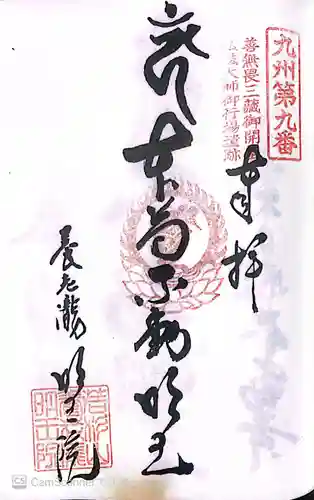 九州第九番
奉拝
善無畏三蔵御開
弘法大師御行場遺跡
本尊不動明王
養老瀧
明王院
CamScanner